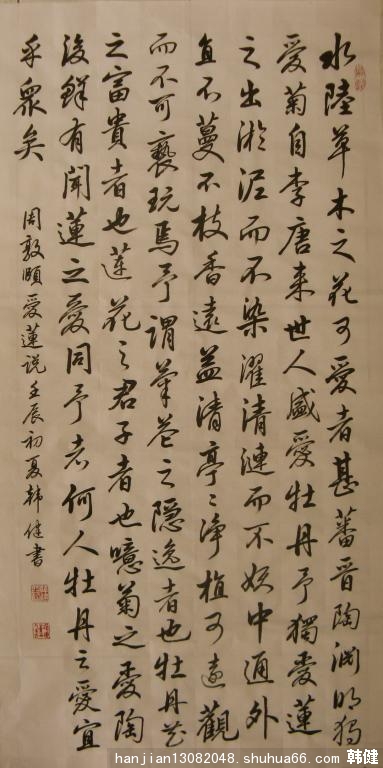 水陸草木之花可愛者甚蕃晋陶渊明獨
愛菊自李唐来世人盛愛牡丹予獨愛蓮
之出淤泥而不染濯清漣而不妖中通外
直不蔓不枝香遠益清亭〻净植可遠觀
而不可褻玩焉予謂菊花之隐逸者也牡丹花
之富貴者也蓮花之君子者也噫菊之愛陶
後鲜有聞蓮之愛同予者何人牡丹之愛宜
乎衆矣
周敦頤愛蓮说壬辰初夏韩健書
hanjian13082048.shuhua66.com 韩健